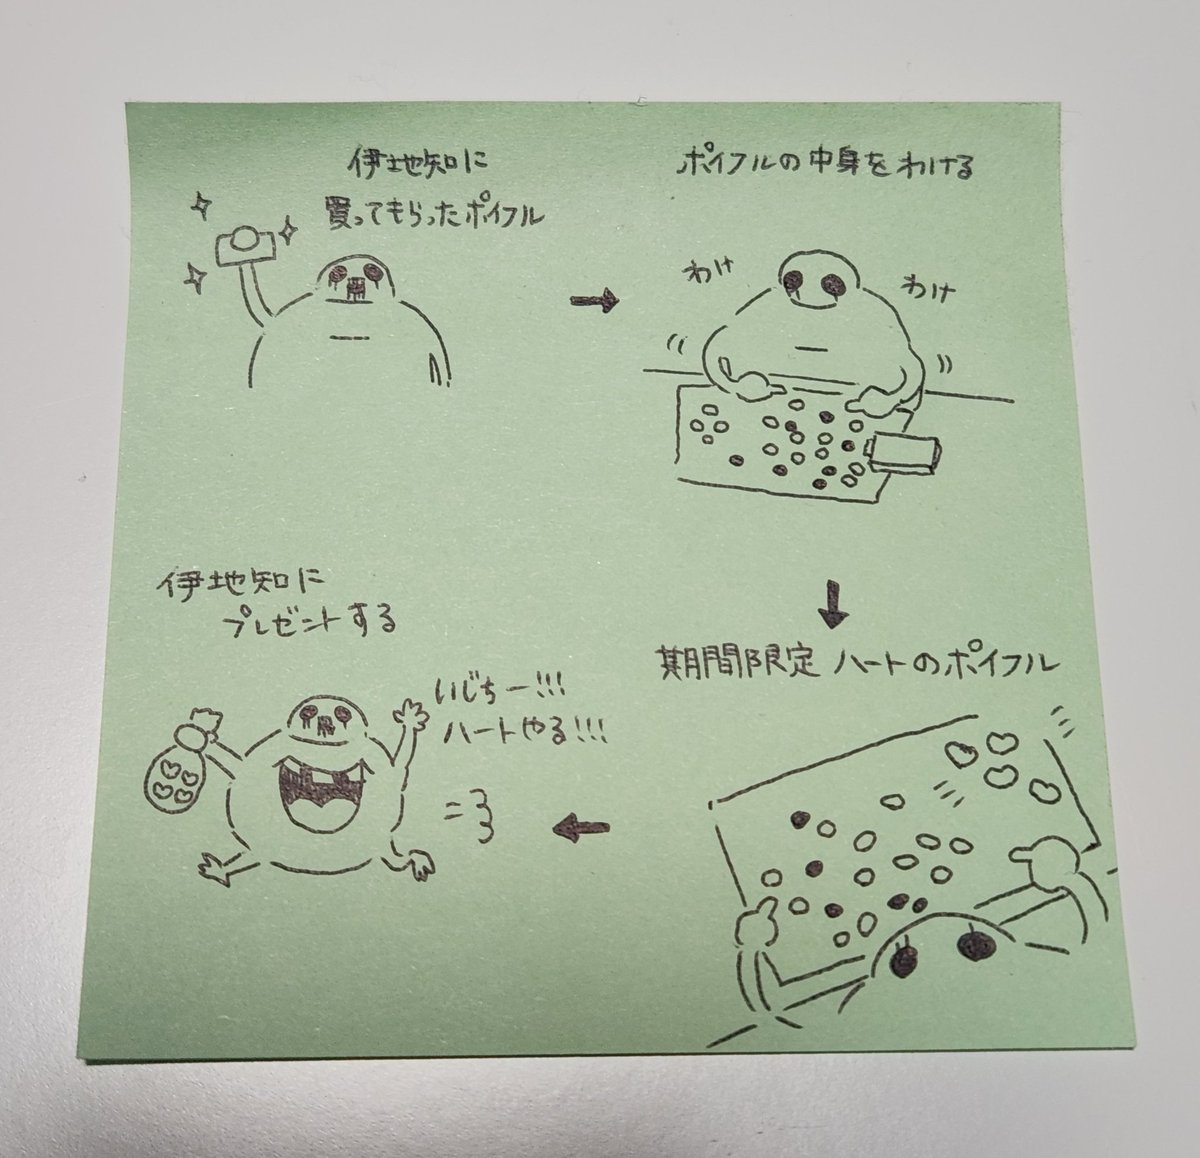 伊地知に
買ってもらったポイフル
ポイフルの中身をわける
わけ
わけ
期間限定 ハートのポイフル
伊地知に
プレゼントする
いじちー!!!
ハートやる!!!